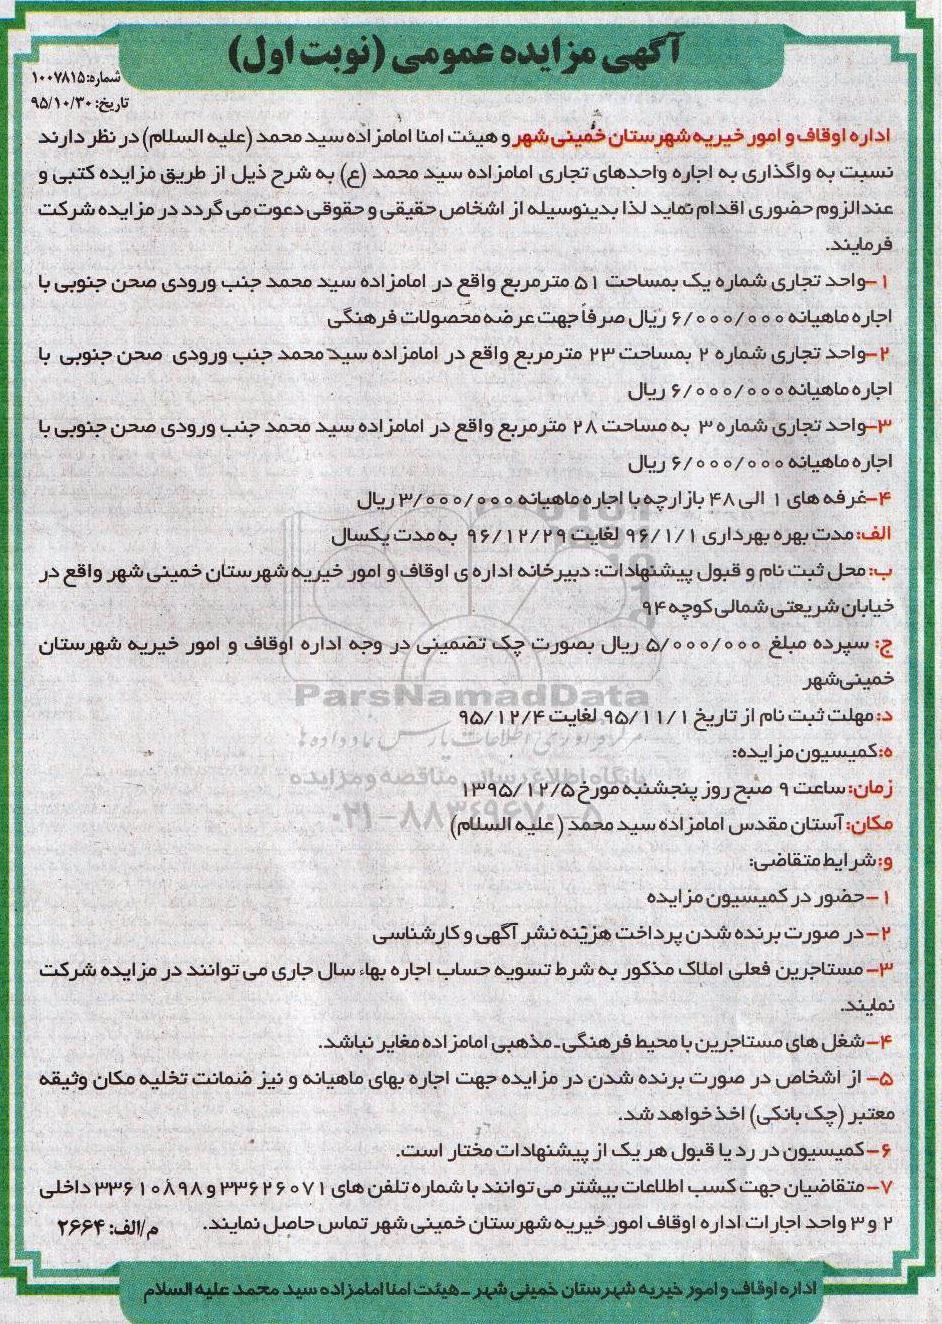 آگهی مزایده عمومی (نوبت اول)
شماره: ۱۰۰۷۸۱۵
تاریخ: ۹۵/۱۰/۳۰
اداره اوقاف و امور خیریه شهرستان خمینی شهر و هیئت امنا امامزاده سید محمد (علیه السلام) در نظر دارند
نسبت به واگذاری به اجاره واحدهای تجاری امامزاده سید محمد (ع) به شرح ذیل از طریق مزایده کتبی و
عندالزوم حضوری اقدام نماید لذا بدینوسیله از اشخاص حقیقی و حقوقی دعوت می گردد در مزایده شرکت
فرمایند.
۱-واحد تجاری شماره یک بمساحت ۵۱ مترمربع واقع در امامزاده سید محمد جنب ورودی صحن جنوبی با
اجاره ماهیانه ۶/۰۰۰/۰۰۰ ریال صرفاً جهت عرضه محصولات فرهنگی
۲-واحد تجاری شماره ۲ بمساحت ۲۳ مترمربع واقع در امامزاده سید محمد جنب ورودی صحن جنوبی با
اجاره ماهیانه ۶/۰۰۰/۰۰۰ ریال
۳-واحد تجاری شماره ۳ به مساحت ۲۸ مترمربع واقع در امامزاده سید محمد جنب ورودی صحن جنوبی با
اجاره ماهیانه ۶/۰۰۰/۰۰۰ ریال
۴-غرفه های ۱ الی ۴۸ بازارچه با اجاره ماهیانه ۳/۰۰۰/۰۰۰ ریال
الف: مدت بهره بهرداری ۹۶/۱/۱ لغایت ۹۶/۱۲/۲۹ به مدت یکسال
ب: محل ثبت نام و قبول پیشنهادات: دبیرخانه اداره ی اوقاف و امور خیریه شهرستان خمینی شهر واقع در
خیابان شریعتی شمالی کوچه ۹۴
ج: سپرده مبلغ ۵/۰۰۰/۰۰۰ ریال بصورت چک تضمینی در وجه اداره اوقاف و امور خیریه شهرستان
خمینی‌شهر
ParsNamadData
د: مهلت ثبت نام از تاریخ ۹۵/۱۱/۱ لغایت ۹۵/۱۲/۴
مرکز فرآوری اطلاعات پارس نماد داده ها
ه: کمیسیون مزایده:
پایگاه اطلاع رسانی مناقصه و مزایده
زمان: ساعت ۹ صبح روز پنجشنبه مورخ ۱۳۹۵/۱۲/۵
۰۲۱-۸۸۳۴۹۶۷۰-۵
مکان: آستان مقدس امامزاده سید محمد (علیه السلام)
و: شرایط متقاضی:
۱-حضور در کمیسیون مزایده
۲-در صورت برنده شدن پرداخت هزینه نشر آگهی و کارشناسی
۳- مستاجرین فعلی املاک مذکور به شرط تسویه حساب اجاره بهاء سال جاری می توانند در مزایده شرکت
نمایند.
۴-شغل های مستاجرین با محیط فرهنگی-مذهبی امامزاده مغایر نباشد.
۵- از اشخاص در صورت برنده شدن در مزایده جهت اجاره بهای ماهیانه و نیز ضمانت تخلیه مکان وثیقه
معتبر (چک بانکی) اخذ خواهد شد.
۶-کمیسیون در رد یا قبول هر یک از پیشنهادات مختار است.
۷-متقاضیان جهت کسب اطلاعات بیشتر می توانند با شماره تلفن های ۳۳۶۲۶۰۷۱ و ۳۳۶۱۰۸۹۸ داخلی
۲ و ۳ واحد اجارات اداره اوقاف امور خیریه شهرستان خمینی شهر تماس حاصل نمایند.
م/الف: ۲۶۶۴
اداره اوقاف و امور خیریه شهرستان خمینی شهر - هیئت امنا امامزاده سید محمد علیه السلام